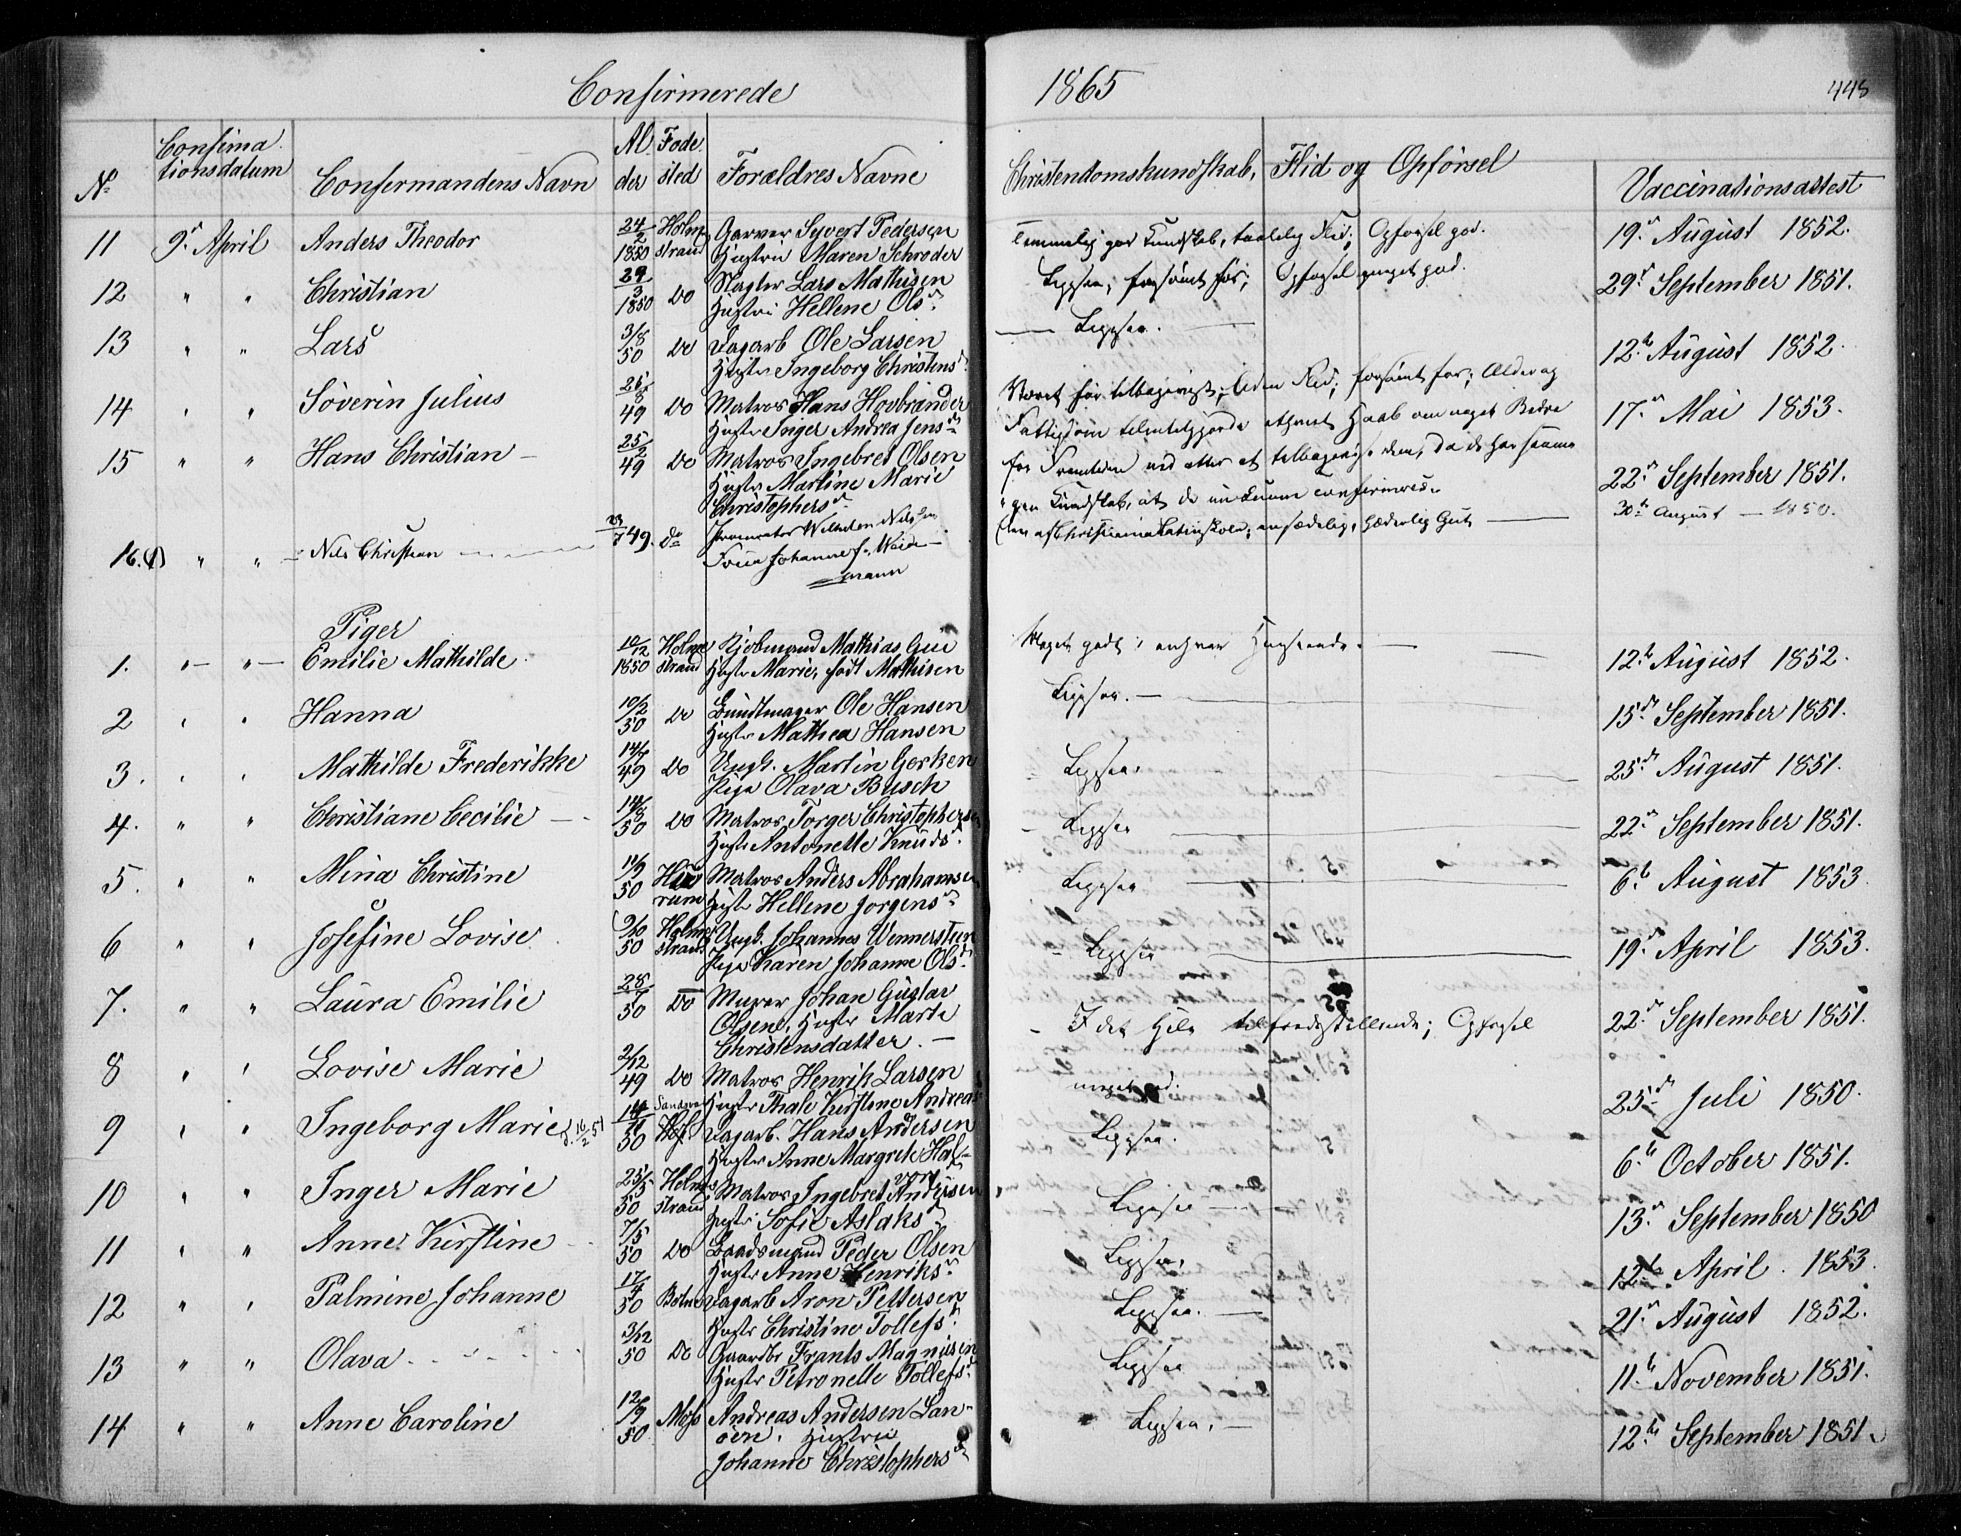 Confirmerede
1865
448
No
Confirma
tionsdatum
Confermandens Navn
Al
der
Føde
sted
Forældres Navne
Christendomskundskab, Flid og Opførsel
Vaccinationsattest
11 9de April Anders Theodor 24/2 1850 Holm strand Garver Syvert Pedersen
Hustru Maren Schrøder
Temmelig god Kundskab, taalelig Flid, Opførsel god.
19de August 1852.
12 " " Christian 29/3 1850 Do Slagter Lars Mathisen
Hustru Hellene Olsdr
Ligesaa; forsømt før; Opførsel meget god.
29de September 1851.
13 " " Lars 3/8 50 Do Dagarb Ole Larsen
Hustr Ingeborg Christensdr
Ligesaa.
12te August 1852.
14 " " Søverin Julius 49 Do Matros Hans Hovbrander
Hustr Inger Andrea Jensdr
Været før tilbagevist; Uden Flid; forsømt før; Alder og
Fattigdom tilintetgjorde ethvert Haab om noget Bedre
17de Mai 1853.
15 " " Hans Christian 25/2 49 Do Matros Ingebret Olsen
Hustr Martine Marie
Christophersdr
for Fremtiden ved atter at tilbagevise dem, da de har samme
Kundskab, at de kunne confirmeres.
22de September 1851.
16. " " Nils Christian 49. Do Procurator Wilhelm Nilssen
Frue Johanne f. Weide
mann
af Christiania Latinskole; hæderlig Gut
30te August 1850.
Piger
1. " " Emilie Mathilde 10/12 1850 Holme strand Kjøbmand Mathias Gue
Hustr Marie, født Mathisen
Meget godt i enhver Henseende.
12te August 1852.
2 " " Hanna 10/2 50 Do Bundtmager Ole Hansen
Hustr Mathea Hansen
Ligesaa.
15de September 1851.
3. " " Mathilde Frederikke 49 Do Ungk. Martin Gerken
Pige Olava Busch
Ligesaa.
25de August 1851.
4. " " Christiane Cecilie 14/8 50 Do Matros Torger Christophersen
Hustr Antonette Knudsdr
Ligesaa
22de September 1851.
5. " " Mina Christine 50 Matros Anders Abrahamsen
Hustr Hellene Jørgensdr
Ligesaa
6te August 1853
6 " " Josefine Lovise 50 Holme strand Ungk. Johannes Wennersteen
Pige Karen Johanne Olsdr
Ligesaa
19de April 1853.
7. " " Laura Emilie 50 Do Murer Johan Gustav
Olsen, Hustr Marte
Christensdatter.
I det Hele tilfredsstillende; Opførsel
22de September 1851.
8 " " Lovise Marie 2/12 49 Do Matros Henrik Larsen
Hustr Thale Kirstine Andreasdr
meget god.
25de Juli 1850.
9 " " Ingeborg Marie d. 16/2 51 50 Dagarb. Hans Andersen
Hustr Anne Margrete
Ligesaa.
6te October 1851.
10 " " Inger Marie 25/5 50 Holme strand Matros Ingebret Andersen
Hustr Sofie Aslaksdr
Ligesaa
13de September 1850
11 " " Anne Kirstine 7/5 50 Do Baadsmand Peder Olsen
Hustr Anne Henriksdr
Ligesaa.
12te April 1853.
12 " " Palmine Johanne 17/4 50 Botne Dagarb Aron Pettersen
Hustr Christine Tollefsdr
Ligesaa.
21de August 1852.
13 " " Olava 3/12 50 Do Gaardbr Frants Magnusen
Hustr Petronelle Tollefsdr
Ligesaa
11te November 1851.
14 " " Anne Caroline 12/9 50 Moss Andreas Andersen Lan-
øen. Hustru
Johanne Christophersdr
Ligesaa.
12te September 1851.